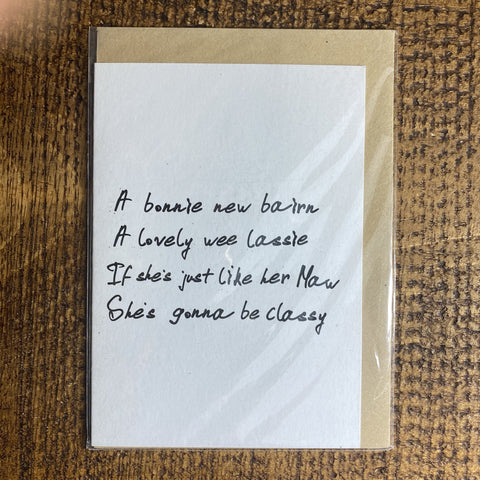 A bonnie new bairn
A lovely wee lassie
If she's just like her Maw
She's gonna be classy